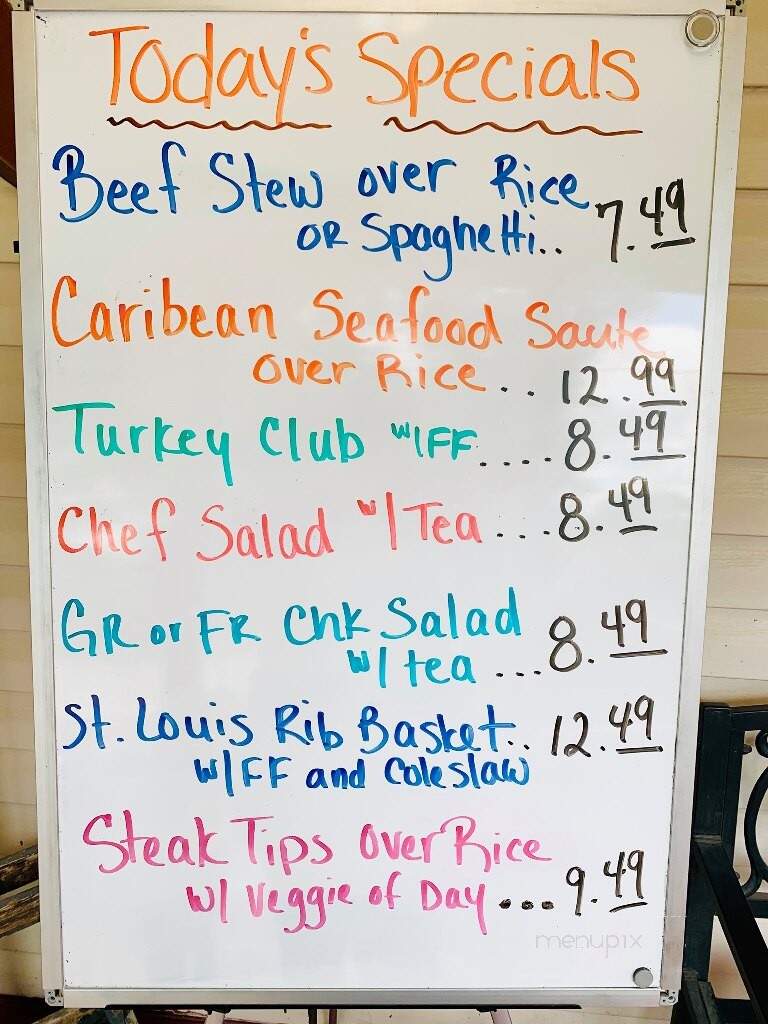 Today's Specials
Beef Stew over Rice
OR Spaghetti.. 7.49
Caribean Seafood Saute
over Rice.. 12.99
Turkey Club w/FF.... 8.49
Chef Salad w/Tea... 8.49
GR or FR Chk Salad
w/ tea ... 8.49
St. Louis Rib Basket.. 12.49
w/FF and Coleslaw
Steak Tips Over Rice
w/ Veggie of Day... 9.49
menupix